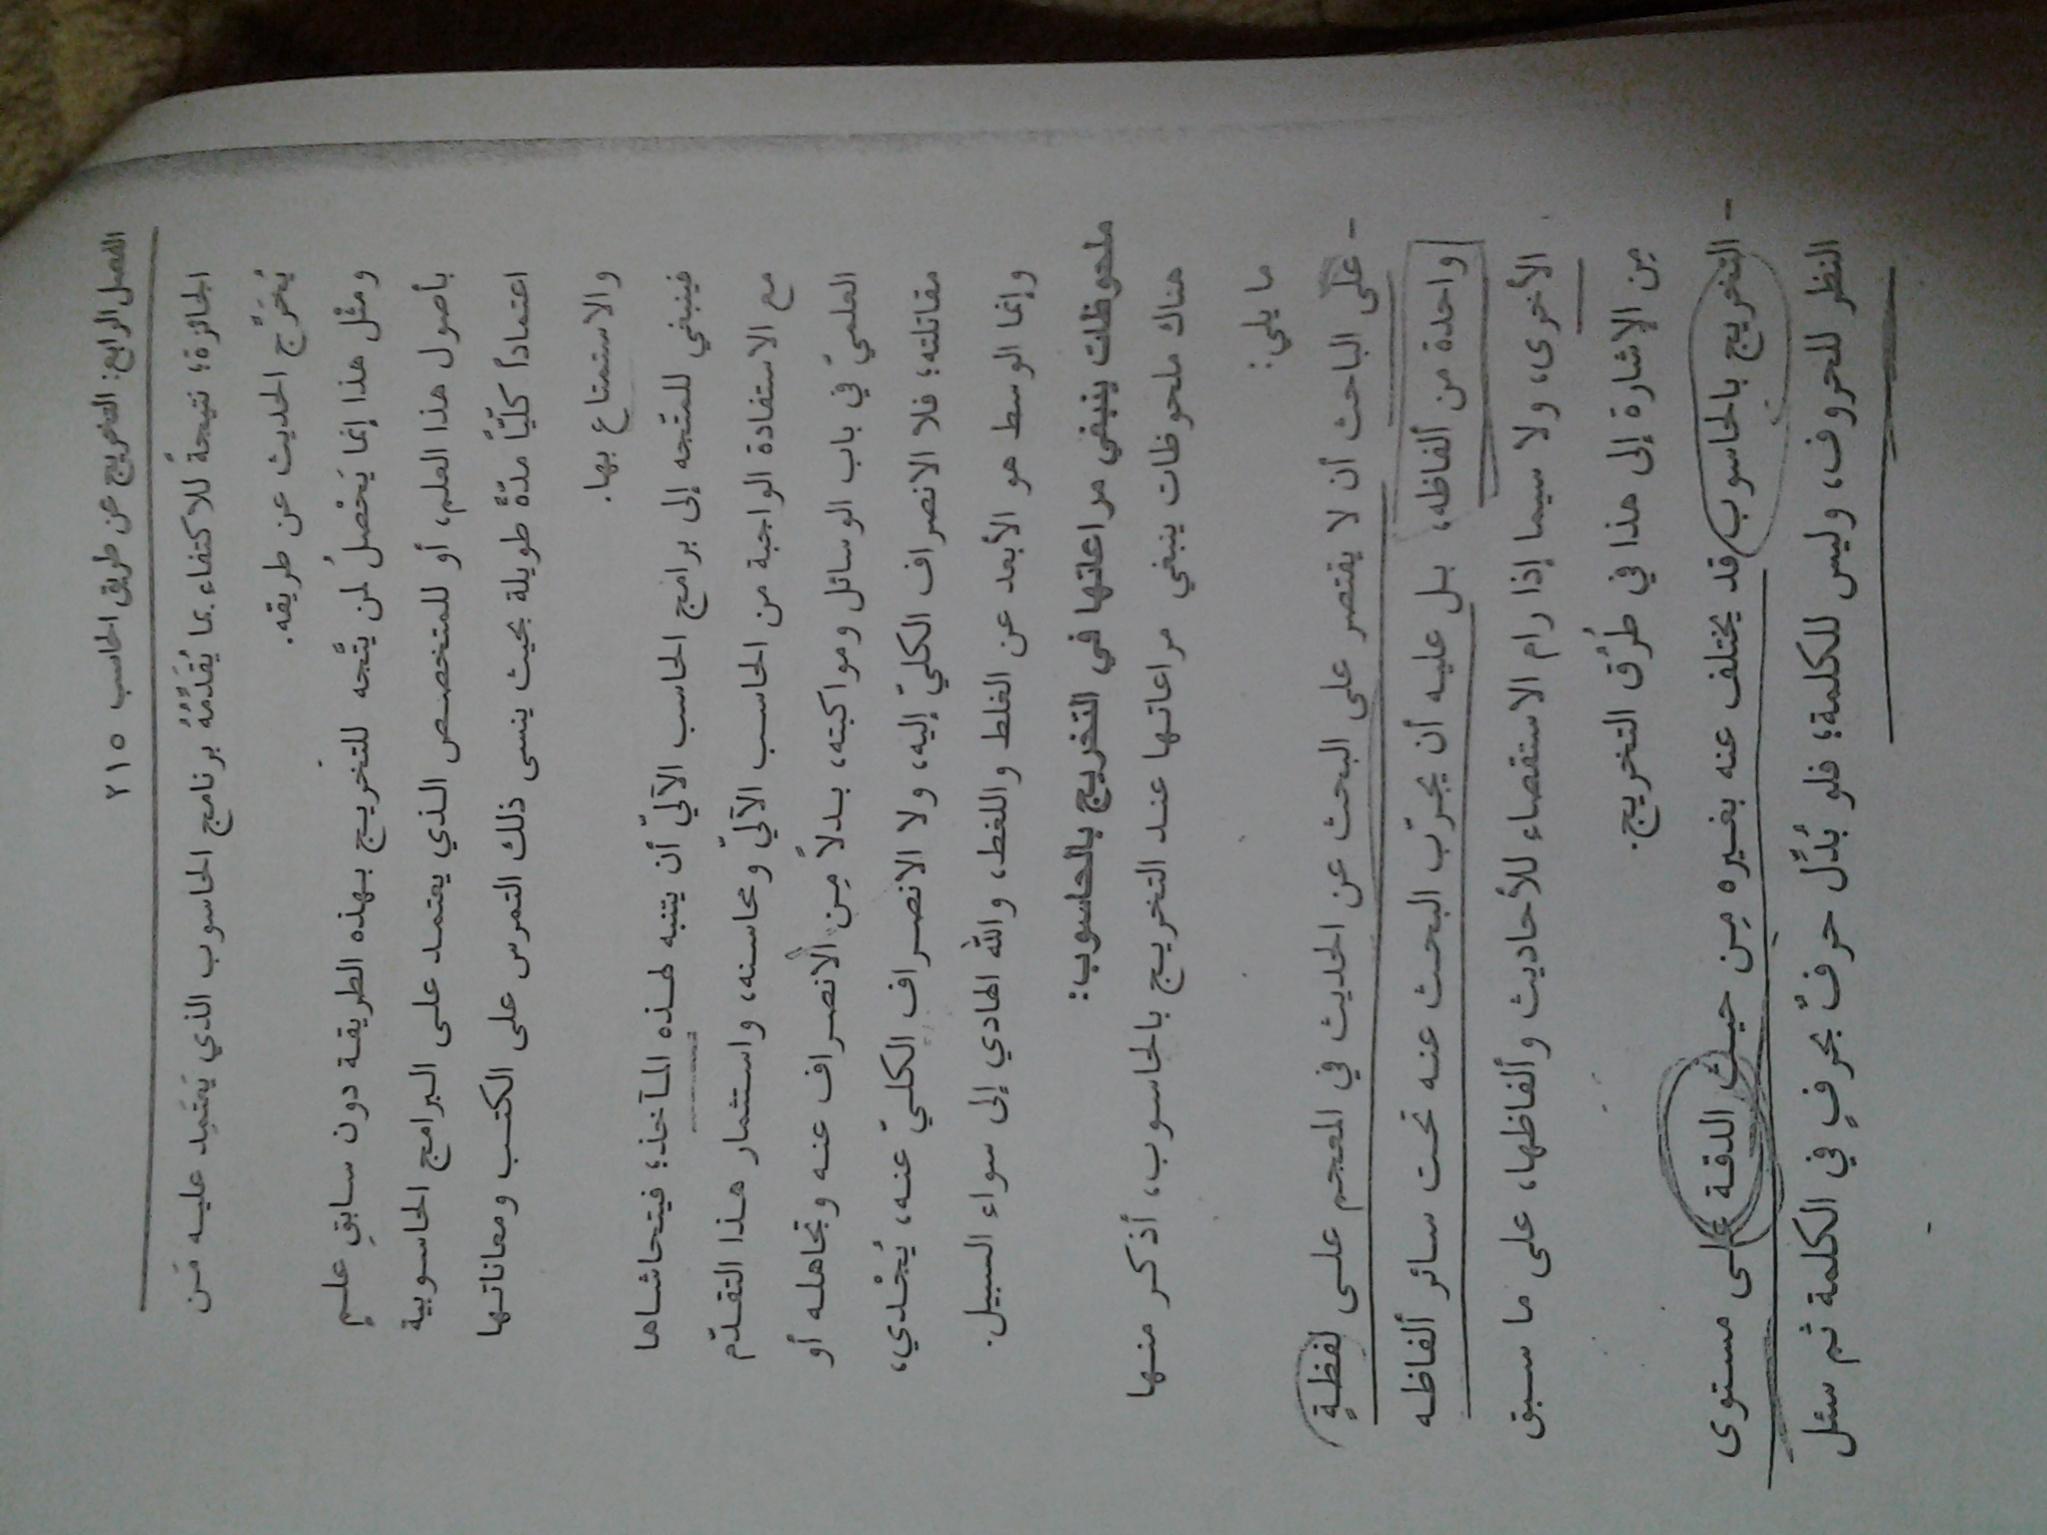 الفصل الرابع: التخريج عن طريق الحاسب ٢١٥
الجائزة؛ نتيجةً للاكتفاء بما يُقَدِّمُهُ برنامج الحاسوب الذي يَعتمِد عليه مَن
يُخَرِّج الحديث عن طريقه.
ومثْل هذا إنما يَحْصلُ لمن يتَّجه للتخريج بهذه الطريقة دون سابقِ علمٍ
بأصول هذا العلم، أو للمتخصص الذي يعتمد على البرامج الحاسوبية
اعتماداً كليّاً مدّةً طويلة بحيث ينسى ذلك التمرس على الكتب ومعاناتها
والاستمتاع بها.
فينبغي للمتّجه إلى برامج الحاسب الآليّ أن يتنبه لهذه المآخذ؛ فيتحاشاها
مع الاستفادة الواجبة من الحاسب الآليّ ومحاسنه، واستثمار هذا التقدّم
العلميّ في باب الوسائل ومواكبته، بدلاً مِن الانصراف عنه وتجاهله أو
مقاتلته؛ فلا الانصراف الكليّ إليه، ولا الانصراف الكليّ عنه، يُجْدي،
وإنما الوسط هو الأبعد عن الغلط واللغط، والله الهادي إلى سواء السبيل.
ملحوظات ينبغي مراعاتها في التخريج بالحاسوب:
هناك ملحوظات ينبغي مراعاتها عند التخريج بالحاسوب، أذكر منها
ما يلي:
- على الباحث أن لا يقتصر على البحث عن الحديث في المعجم على لفظةٍ
واحدة من ألفاظه، بل عليه أن يجرّب البحث عنه تحت سائر ألفاظه
الأخرى، ولا سيما إذا رام الاستقصاء للأحاديث وألفاظها، على ما سبق
مِن الإشارة إلى هذا في طُرُق التخريج.
- التخريج بالحاسوب قد يختلف عنه بغيره مِن حيث الدقة على مستوى
النظر للحروف، وليس للكلمة؛ فلو بُدِّل حرفٌ بحرفٍ في الكلمة ثم سئل